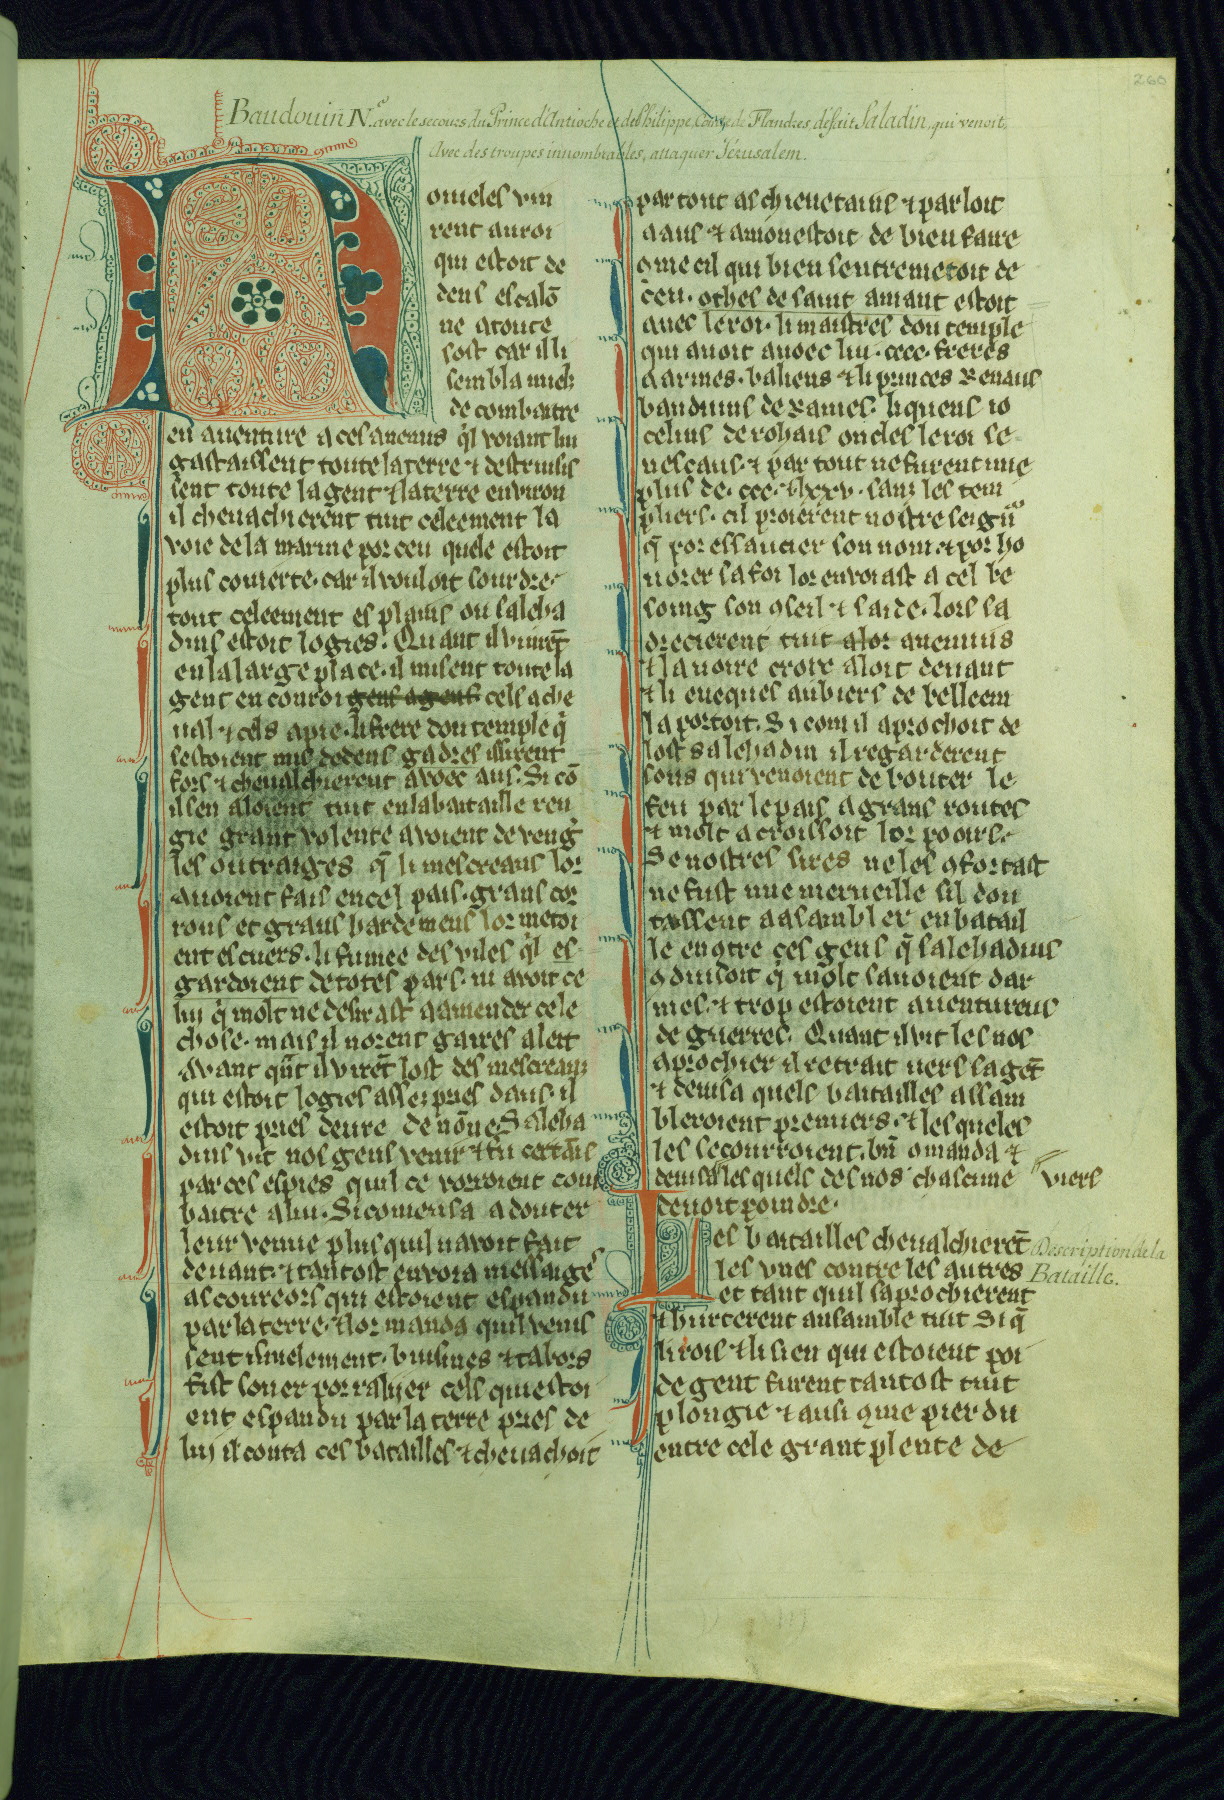 260
Baudouin IVe. avec le secours du Prince d'Antioche et de Philippe, Comte de Flandres défait Saladin, qui venoit,
Avec des troupes innombrables, attaquer Jérusalem.
Noueles vin
rent au roi
qui estoit de
dens escalō
ne a toute
sost car il li
sembla miels
de combatre
en auenture a ces anemis q̄l voiant lui
gastaissent toute la terre ⁊ destruisis
sent toute la gent ⁊ la terre environ
il cheuachierent tuit celeement la
voie de la marine por ceu quele estoit
plus couierte. car il vouloit sourdre.
tout celeement es plains ou saleha
dins estoit logies. Quant il vinrēt
en la large place. il misent toute la
gent en couroi gens a gens cels a che
ual ⁊ cels a pie. li frere dou temple q̄
sestoient mis dedens gadres issirent
fors ⁊ cheualchierent avoec aus. Si cō
il sen aloient tuit en la bataille ren
gie grant volente avoient de veng̃
les outraiges q̄ li mescreans lor
auoient fais en cel pais. grans cor
rous et grans hardemens lor metoi
ent es cuers. li fumee des viles q̄l es
gardoient de totes pars. ni avoit ce
lui q̄ molt ne desirast a amender cele
chose. mais il norent gaires aleit
avant qn̄t il virēt lost des mescreans
qui estoit logies asses pres daus. il
estoit pries deure de none. Saleha
dins vit nos gens venir ⁊ fu certains
par ces espies quil ce vorroient com
baitre a lui. Si comensa a douter
leur venue plus quil navoit fait
deuant. ⁊ tantost envoia messaiges
as coureors qui estoient espandu
par la terre. ⁊ lor manda quil venis
sent isnelement. buisines ⁊ tabors
fist soner por ralijer cels qui estoi
ent espandu par la terre pries de
lui il conta ces batailles ⁊ cheuachoit
par tout as chieuetains ⁊ parloit
a aus ⁊ amonestoit de bien faire
ɔme cil qui bien sentremetoit de
ceu. othes de saint amant estoit
auec le roi. li maistres dou temple
qui avoit avoec lui .cccc. freres
a armes. baliens ⁊ li princes Renaus
bauduins de Rames. li queus io
celins de rohais oncles le roi se
nescaus. ⁊ par tout ne furent mie
plus de .ccc. ⁊ lxxv. sanz les tem
pliers. cil proierent nostre seign̄r
q̄ por essaucier son nom ⁊ por ho
norer sa foi lor envoiast a cel be
soing son ɔseil ⁊ saide. lors sa
drecierent tuit a lor anemis
⁊ la uoire croix aloit deuant
⁊ li eueques aubiers de belleem
la portoit. Si com il aprochoit de
lost salehadin il regarderent
sous qui venoient de bouter le
feu par le pais a grans routes
⁊ molt acroissoit lor pooirs.
Se nostres sires ne les ɔfortast
ne fust mie merueille sil dou
tassent a asambler en batail
le enɔtre ces gens q̄ salehadins
ɔduisoit q̄ molt sauoient dar
mes. ⁊ trop estoient auentureus
de guerres. Quant il vit les nos
aprochier il retrait uers sa gēt
⁊ deuisa quels batailles assam
bleroient premiers. ⁊ les queles
les secourroient. bn̄ ɔmanda ⁊
deuisa les quels des nos chascune viers
deuoit poindre.
Les batailles cheualchierēt
les vnes contre les autres
et tant quil saprochierent
⁊ hurterent ansamble tuit Si q̄
li rois ⁊ li sien qui estoient poi
de gent furent tantost tuit
plongie ⁊ ausi ɔme pierdu
entre cele grant plente de
Description de la
Bataille.